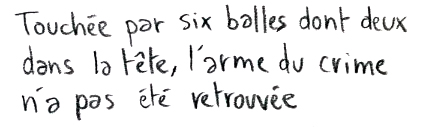 Touchée par six balles dont deux
dans la tête, l'arme du crime
n'a pas été retrouvée